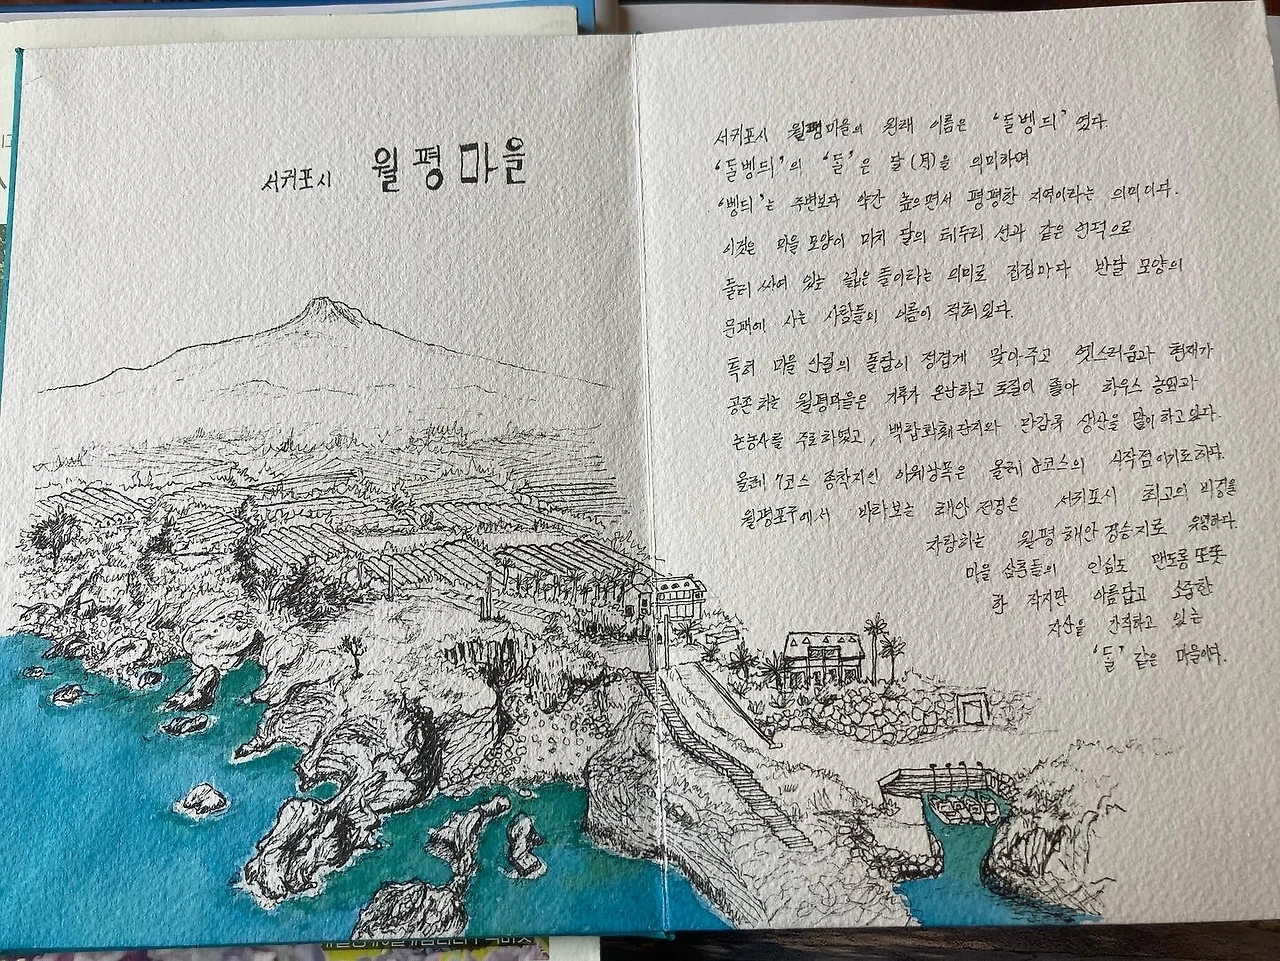 서귀포시 월평마을
서귀포시 월평마을의 원래 이름은 '돌벵듸' 였다.
'돌벵듸'의 '돌'은 달(月)을 의미하며
'벵듸'는 주변보다 약간 높으면서 평평한 지역이라는 의미이다.
이것은 마을 모양이 마치 달의 테두리 선과 같은 언덕으로
둘러 싸여 있는 넓은 들이라는 의미로 집집마다 반달 모양의
문패에 사는 사람들의 이름이 적혀있다.
특히 마을 안길의 돌담이 정겹게 맞아주고 옛스러움과 현재가
공존하는 월평마을은 기후가 온난하고 토질이 좋아 하우스 농업과
논농사를 주로하였고, 백합화훼단지와 단감류 생산을 많이하고있다.
올레 7코스 종착지인 아왜낭목은 올레 8코스의 시작점이기도하다.
월평포구에서 바라보는 해안 전경은 서귀포시 최고의 비경을
자랑하는 월평해안 경승지로 유명하다.
마을 삼촌들의 인심도 맨도롱 또똣
한 작지만 아름답고 소중한
자산을 간직하고 있는
'돌' 같은 마을이다.